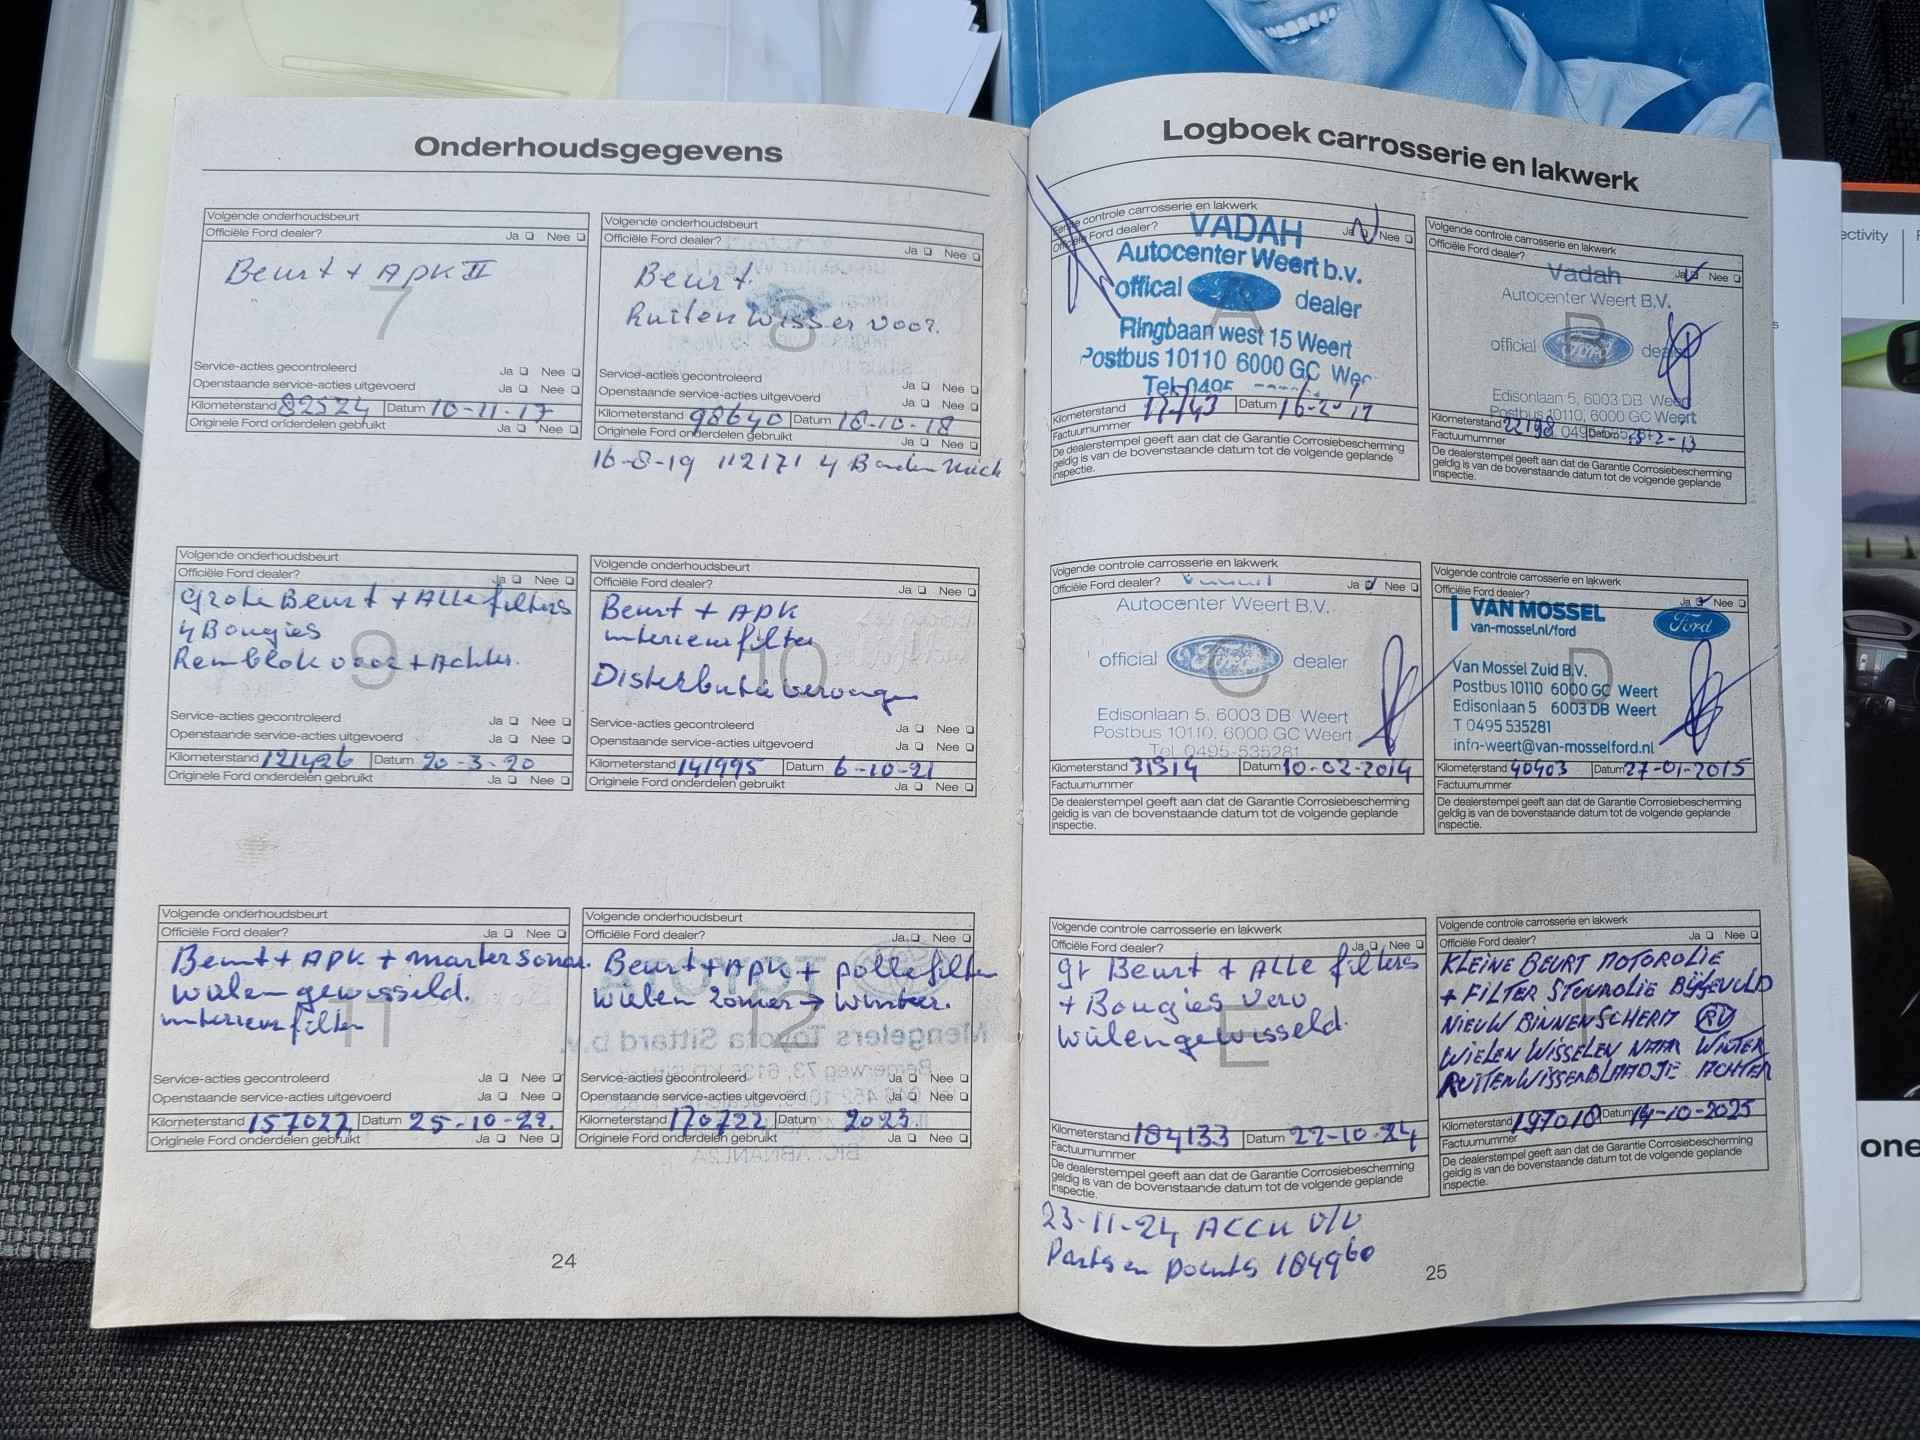 Onderhoudsgegevens
Volgende onderhoudsbeurt
Officiële Ford dealer? Ja Nee
Beurt + APK II
7
Service-acties gecontroleerd Ja Nee
Openstaande service-acties uitgevoerd Ja Nee
Kilometerstand 82574 Datum 10-11-17
Originele Ford onderdelen gebruikt Ja Nee
Volgende onderhoudsbeurt
Officiële Ford dealer? Ja Nee
Beurt.
Ruiten wisser voor.
8
Service-acties gecontroleerd Ja Nee
Openstaande service-acties uitgevoerd Ja Nee
Kilometerstand 98640 Datum 18-10-18
Originele Ford onderdelen gebruikt Ja Nee
16-8-19 112171 4 Banden
Volgende onderhoudsbeurt
Officiële Ford dealer? Ja Nee
Grote Beurt + Alle filters
4 Bougies
Remblok voor + Achter.
9
Service-acties gecontroleerd Ja Nee
Openstaande service-acties uitgevoerd Ja Nee
Kilometerstand 121426 Datum 20-3-20
Originele Ford onderdelen gebruikt Ja Nee
Volgende onderhoudsbeurt
Officiële Ford dealer? Ja Nee
Beurt + APK
interieurfilter
10
Service-acties gecontroleerd Ja Nee
Openstaande service-acties uitgevoerd Ja Nee
Kilometerstand 141995 Datum 6-10-21
Originele Ford onderdelen gebruikt Ja Nee
Volgende onderhoudsbeurt
Officiële Ford dealer? Ja Nee
Beurt + APK +
wielen gewisseld.
interieurfilter
11
Service-acties gecontroleerd Ja Nee
Openstaande service-acties uitgevoerd Ja Nee
Kilometerstand 157027 Datum 25-10-22.
Originele Ford onderdelen gebruikt Ja Nee
Volgende onderhoudsbeurt
Officiële Ford dealer? Ja Nee
Beurt + APK + pollefilter
wielen zomer → winter.
12
Service-acties gecontroleerd Ja Nee
Openstaande service-acties uitgevoerd Ja Nee
Kilometerstand 170722 Datum 2023.
Originele Ford onderdelen gebruikt Ja Nee
24
Logboek carrosserie en lakwerk
Eerste controle carrosserie en lakwerk
Officiële Ford dealer? Ja Nee
VADAH
Autocenter Weert b.v.
offical A dealer
Ringbaan west 15 Weert
Postbus 10110 6000 GC Weer
Tel. 0495
Kilometerstand Datum
Factuurnummer
De dealerstempel geeft aan dat de Garantie Corrosiebescherming
geldig is van de bovenstaande datum tot de volgende geplande
inspectie.
Volgende controle carrosserie en lakwerk
Officiële Ford dealer? Ja Nee
Vadah
Autocenter Weert B.V.
B
official Ford dealer
Edisonlaan 5, 6003 DB Weert
Postbus 10110, 6000 GC Weert
Kilometerstand 22198 Datum
Factuurnummer
De dealerstempel geeft aan dat de Garantie Corrosiebescherming
geldig is van de bovenstaande datum tot de volgende geplande
inspectie.
Volgende controle carrosserie en lakwerk
Officiële Ford dealer? Ja Nee
Autocenter Weert B.V.
C
official Ford dealer
Edisonlaan 5, 6003 DB Weert
Postbus 10110, 6000 GC Weert
Tel. 0495-535281
Kilometerstand 31314 Datum 10-02-2014
Factuurnummer
De dealerstempel geeft aan dat de Garantie Corrosiebescherming
geldig is van de bovenstaande datum tot de volgende geplande
inspectie.
Volgende controle carrosserie en lakwerk
Officiële Ford dealer? Ja Nee
VAN MOSSEL Ford
van-mossel.nl/ford
D
Van Mossel Zuid B.V.
Postbus 10110 6000 GC Weert
Edisonlaan 5 6003 DB Weert
T 0495 535281
info-weert@van-mosselford.nl
Kilometerstand 40403 Datum 27-01-2015
Factuurnummer
De dealerstempel geeft aan dat de Garantie Corrosiebescherming
geldig is van de bovenstaande datum tot de volgende geplande
inspectie.
Volgende controle carrosserie en lakwerk
Officiële Ford dealer? Ja Nee
gr Beurt + Alle filters
+ Bougies
wielen gewisseld.
E
Kilometerstand 184133 Datum 22-10-24
Factuurnummer
De dealerstempel geeft aan dat de Garantie Corrosiebescherming
geldig is van de bovenstaande datum tot de volgende geplande
inspectie.
23-11-24 ACCU V/V
Parts en points 184960
Volgende controle carrosserie en lakwerk
Officiële Ford dealer? Ja Nee
KLEINE BEURT MOTOROLIE
+ FILTER STUUROLIE BIJGEVULD
NIEUW BINNENSCHERM RV
WIELEN WISSELEN NAAR WINTER
RUITENWISSERBLAADJE ACHTER
Kilometerstand 197018 Datum 14-10-2025
Factuurnummer
De dealerstempel geeft aan dat de Garantie Corrosiebescherming
geldig is van de bovenstaande datum tot de volgende geplande
inspectie.
25
ectivity
one